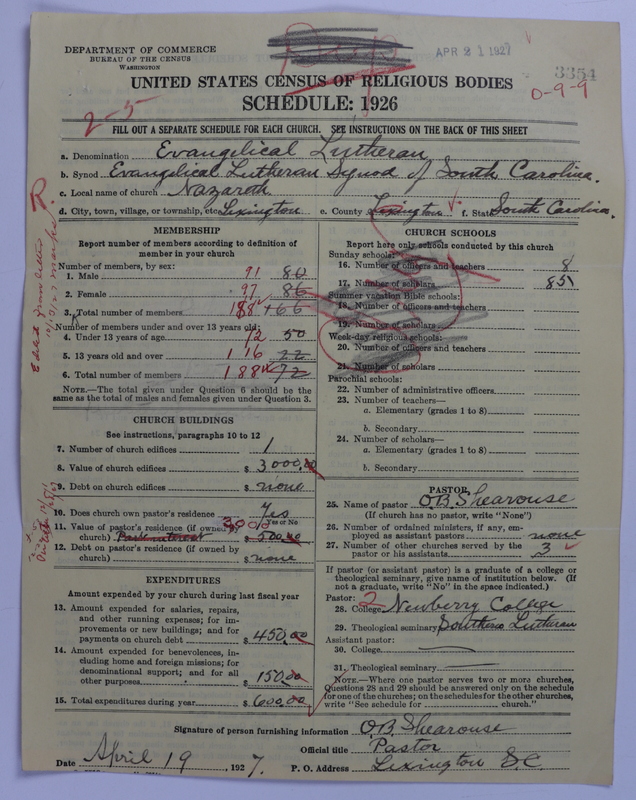 DEPARTMENT OF COMMERCE
BUREAU OF THE CENSUS
WASHINGTON
APR 21 1927
3354
0-9-9
UNITED STATES CENSUS OF RELIGIOUS BODIES
SCHEDULE: 1926
2-5
FILL OUT A SEPARATE SCHEDULE FOR EACH CHURCH. SEE INSTRUCTIONS ON THE BACK OF THIS SHEET
a. Denomination Evangelical Lutheran
b. Synod Evangelical Lutheran Synod of South Carolina.
c. Local name of church Nazareth
d. City, town, village, or township, etc. Lexington e. County Lexington f. State South Carolina.
MEMBERSHIP
Report number of members according to definition of
member in your church
Number of members, by sex:
1. Male 91 80
2. Female 97 86
3. Total number of members 188 166
Number of members under and over 13 years old:
4. Under 13 years of age 12 50
5. 13 years old and over 116 22
6. Total number of members 188 72
NOTE.—The total given under Question 6 should be the
same as the total of males and females given under Question 3.
CHURCH BUILDINGS
See instructions, paragraphs 10 to 12
7. Number of church edifices 1
8. Value of church edifices $ 3000.00
9. Debt on church edifices $ none
10. Does church own pastor's residence Yes
Yes or No
11. Value of pastor's residence (if owned by
church) Part interest $ 500.00
12. Debt on pastor's residence (if owned by
church) $ none
EXPENDITURES
Amount expended by your church during last fiscal year
13. Amount expended for salaries, repairs,
and other running expenses; for im-
provements or new buildings; and for
payments on church debt $ 450.00
14. Amount expended for benevolences, in-
cluding home and foreign missions; for
denominational support; and for all
other purposes $ 150.00
15. Total expenditures during year $ 600.00
CHURCH SCHOOLS
Report here only schools conducted by this church
Sunday schools:
16. Number of officers and teachers 8
17. Number of scholars 85
Summer vacation Bible schools:
18. Number of officers and teachers
19. Number of scholars
Week-day religious schools:
20. Number of officers and teachers
21. Number of scholars
Parochial schools:
22. Number of administrative officers
23. Number of teachers—
a. Elementary (grades 1 to 8)
b. Secondary
24. Number of scholars—
a. Elementary (grades 1 to 8)
b. Secondary
PASTOR
25. Name of pastor O.B. Shearouse
(If church has no pastor, write "None")
26. Number of ordained ministers, if any, em-
ployed as assistant pastors none
27. Number of other churches served by the
pastor or his assistants 3
If pastor (or assistant pastor) is a graduate of a college or
theological seminary, give name of institution below. (If
not a graduate, write "No" in the space indicated.)
Pastor: 2
28. College Newberry College
29. Theological seminary Southern Lutheran
Assistant pastor:
30. College
31. Theological seminary
NOTE.—Where one pastor serves two or more churches,
Questions 28 and 29 should be answered only on the schedule
for one of the churches; on the schedules for the other churches,
write "See schedule for church."
Signature of person furnishing information O.B. Shearouse
Official title Pastor
Date April 19, 1927. P. O. Address Lexington S.C.